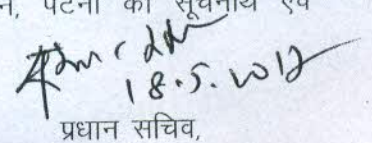 पटना को सूचनार्थ एवं
18.5.2012
प्रधान सचिव,